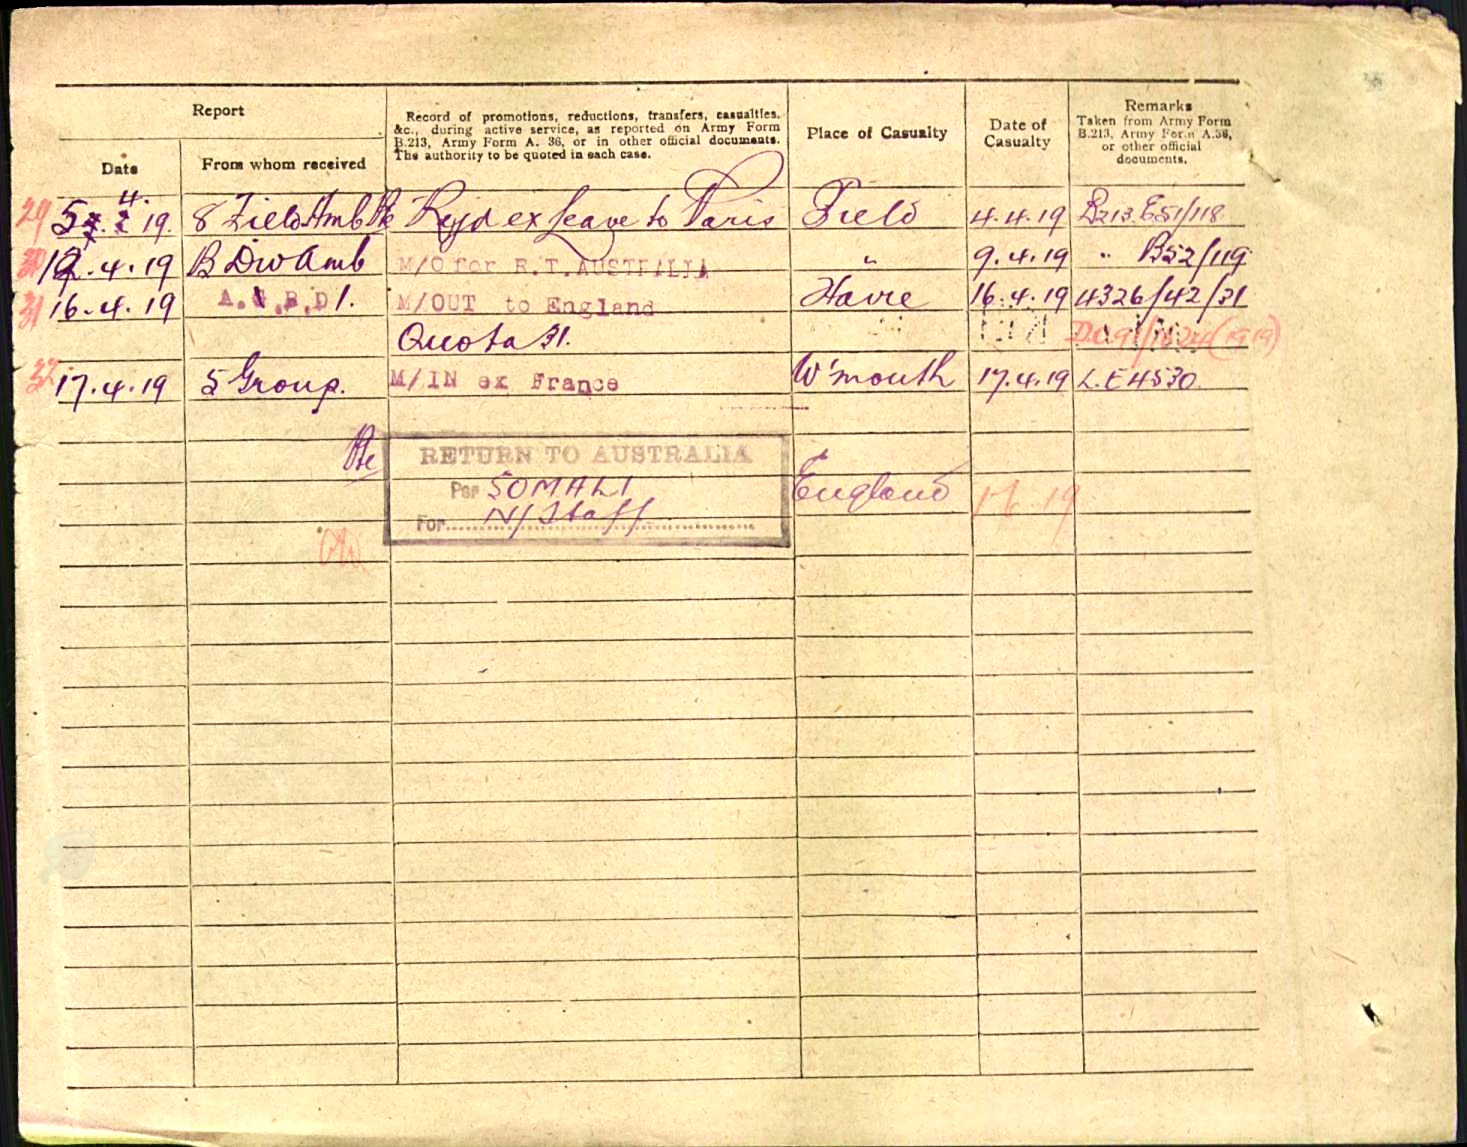 Report
Record of promotions, reductions, transfers, casualties,
&c., during active service, as reported on Army Form
B.213, Army Form A. 36, or in other official documents.
The authority to be quoted in each case.
Place of Casualty
Date of
Casualty
Remarks
Taken from Army Form
B.213, Army Form A.36,
or other official
documents.
Date
From whom received
29 5. 4. 19. 8 Field Amb Pte Rejd ex leave to Paris Field 4.4.19 B213 E51/118
12.4.19 B Div Amb M/O for R.T. AUSTRALIA " 9.4.19 " B52/119
31 16.4.19 A. . B. D 1. M/OUT to England Havre 16.4.19 4326/42/31
Quota 31.
32 17.4.19 5 Group. M/IN ex France W'mouth 17.4.19 L.E 4530
Pte RETURN TO AUSTRALIA
Per SOMALI England
For N/Staff